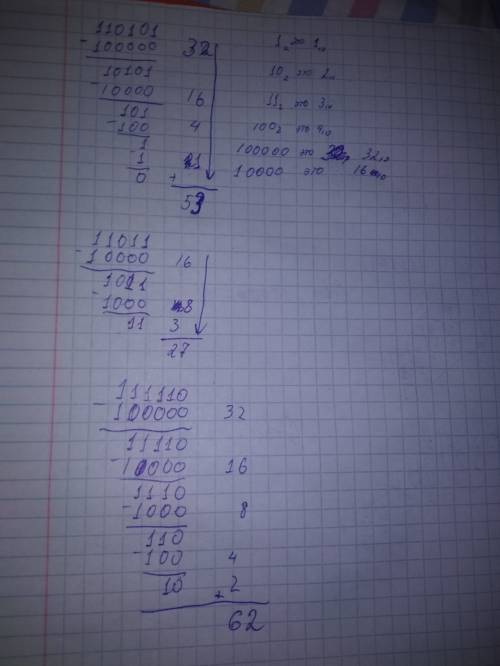 110101
- 100000 32
10101
- 10000 16
101
- 100 4
- 1
1 1
0 +
53
1₂ это 1₁₀
10₂ это 2₁₀
11₂ это 3₁₀
100₂ это 4₁₀
100000 это 32₁₀
10000 это 16₁₀
11011
- 10000 16
1011
- 1000 8
11 3
27
111110
- 100000 32
11110
- 10000 16
1110
- 1000 8
110
- 100 4
10 + 2
62